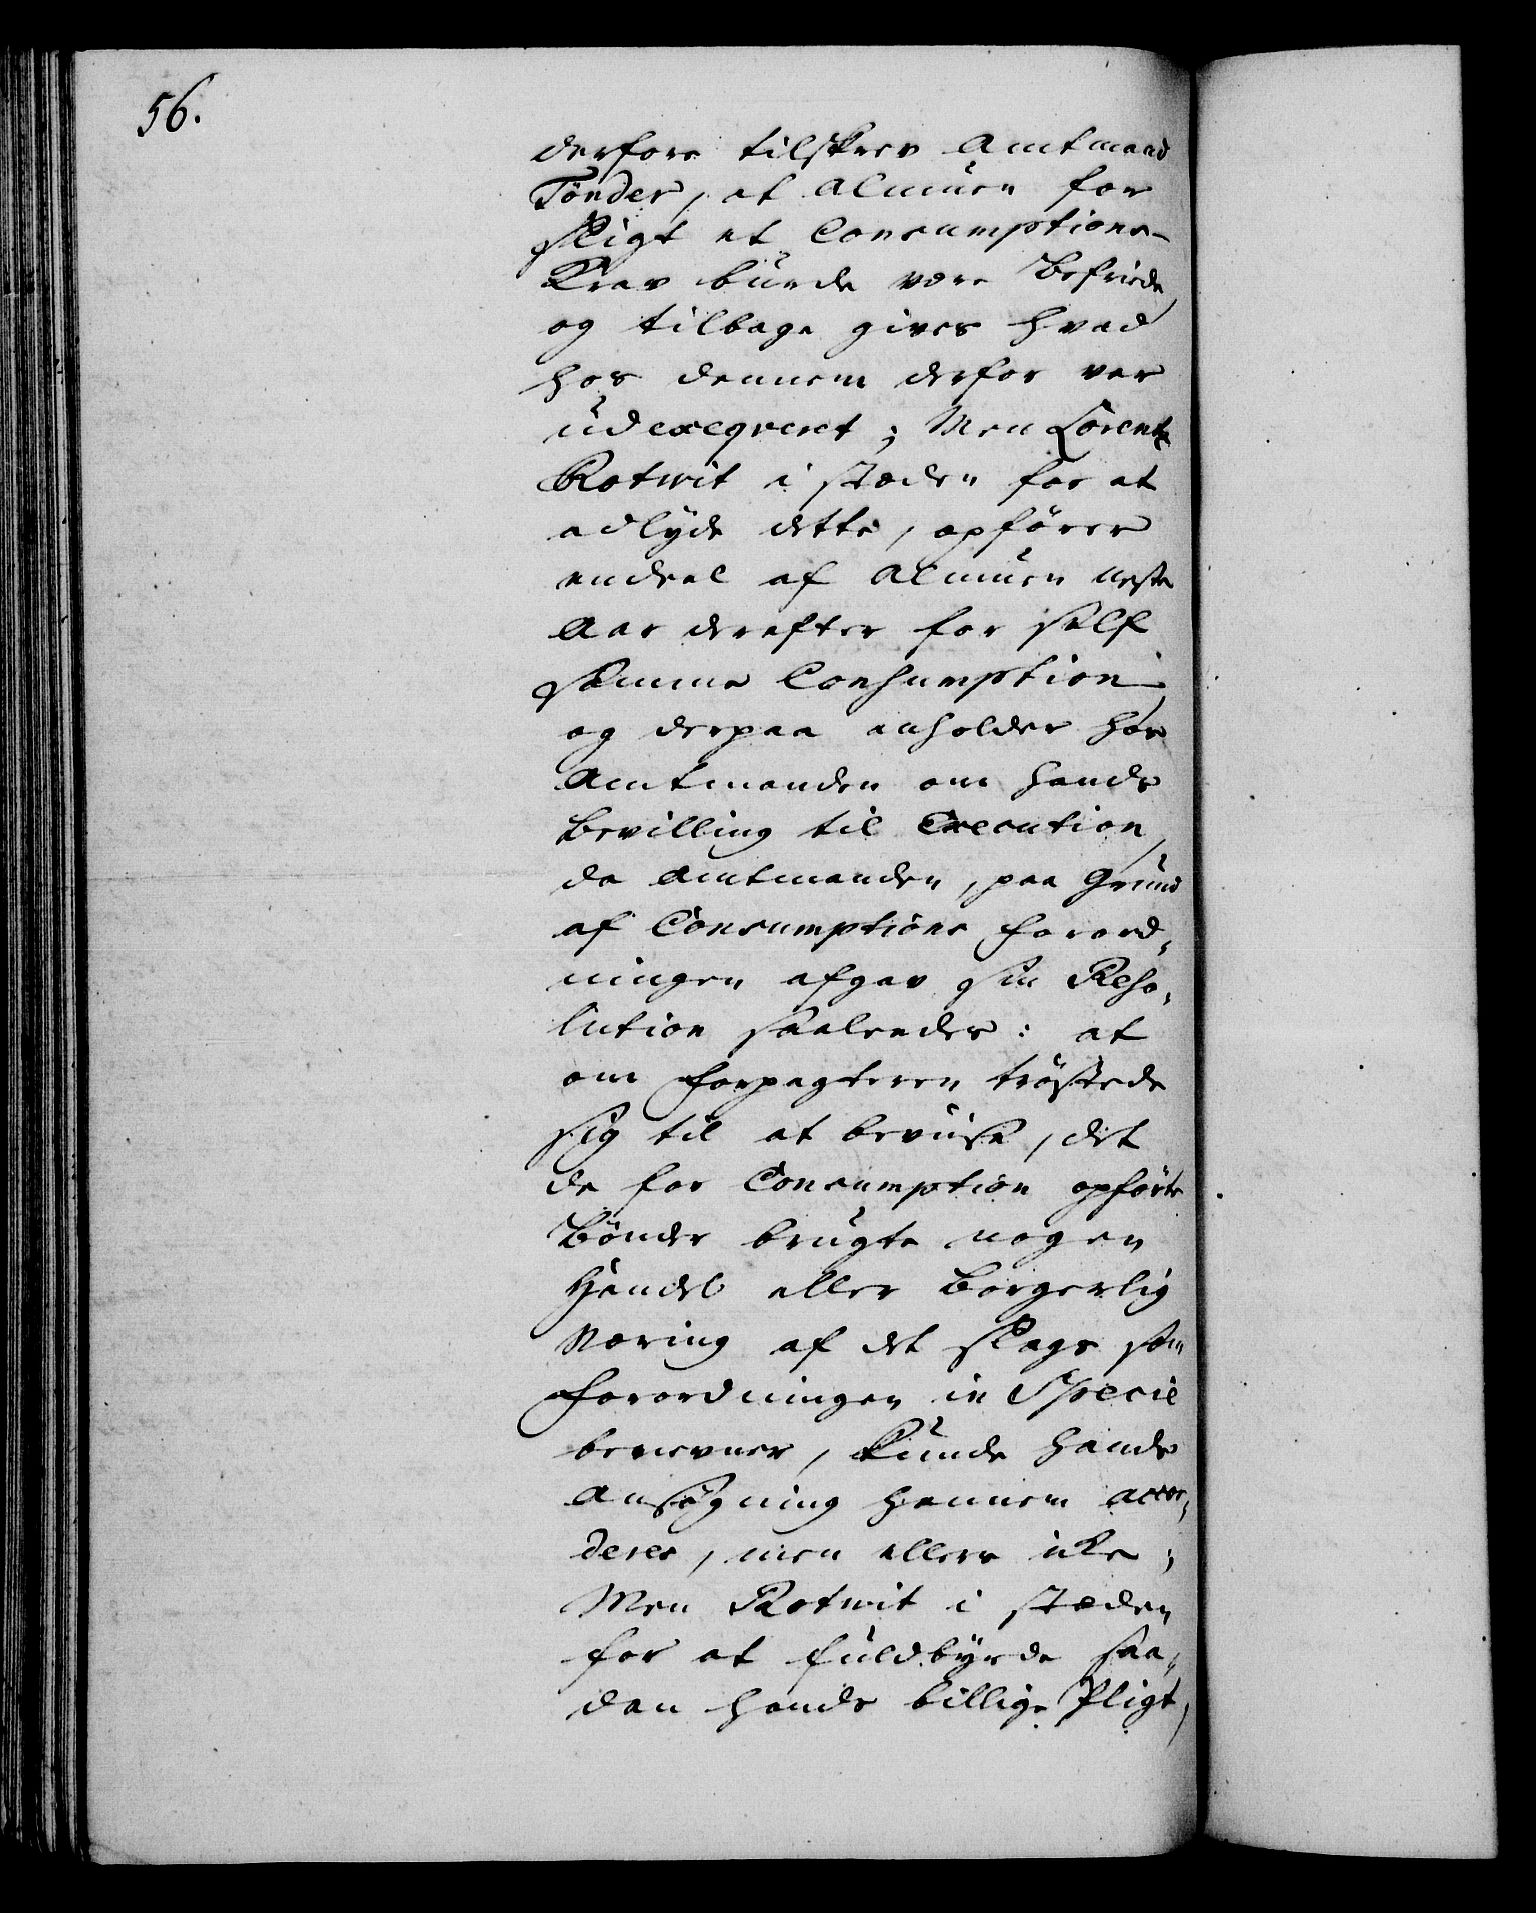 56.
derfore tilskrev Amtmand
Tönder, at Almuen for
sligt et Consumptions-
Krav burde være befriede,
og tilbage gives hvad
hos dennem derfor var
udexeqveret; Men Lorentz
Rotwit i stæden for at
adlyde dette, opförer
endeel af Almuen neste
Aar derefter for self
samme Consumption,
og derpaa anholder hos
Amtmanden om hands
bevilling til Execution,
da Amtmanden, paa Grund
af Consumptions Forord„
ningen afgav sin Reso„
lution saaledes: at
om Forpagteren tröstede
sig til at beviise, det
de for Consumption opförte
Bönder brugte nogen
Handel eller borgerlig
Næring af det slags som
Forordningen in Specie
benevner, kunde hands
Ansögning hannem accor„
deres, men ellers ikke;
Men Rotwit i stæden
for at fuldbyrde saa„
dan hands billige Pligt,